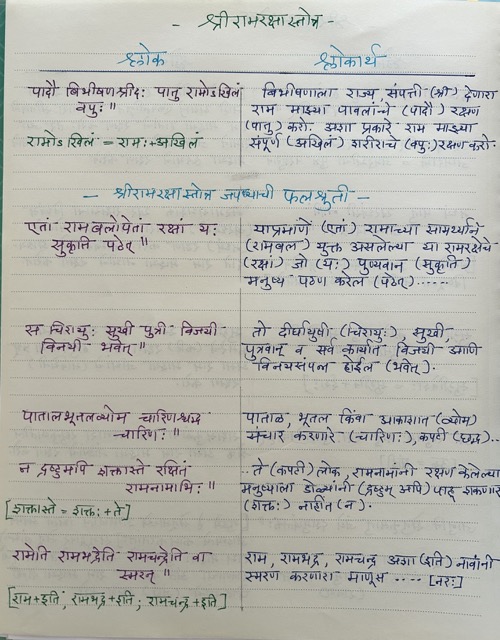 - श्रीरामरक्षास्तोत्र -
श्लोक
श्लोकार्थ
पादौ बिभीषणश्रीदः पातु रामोऽखिलं
वपुः ॥
रामोऽखिलं = रामः+अखिलं
बिभीषणाला राज्य, संपत्ती (श्री) देणारा
राम माझ्या पावलांचे (पादौ) रक्षण
(पातु) करो. अशा प्रकारे राम माझ्या
संपूर्ण (अखिलं) शरीराचे (वपुः) रक्षण करो.
- श्रीरामरक्षास्तोत्र जपण्याची फलश्रुती -
एतां रामबलोपेतां रक्षां यः
सुकृति पठेत् ॥
याप्रमाणे (एतां) रामाच्या सामर्थ्याने
(रामबल) युक्त असलेल्या या रामरक्षेचे
(रक्षां) जो (यः) पुण्यवान (सुकृति)
मनुष्य पठण करेल (पठेत्)......
स चिरायुः सुखी पुत्री विजयी
विनयी भवेत् ॥
तो दीर्घायुषी (चिरायुः), सुखी,
पुत्रवान् व सर्व कार्यात विजयी आणि
विनयसंपन्न होईल (भवेत्).
पातालभूतलव्योम चारिणश्छद्म
चारिणः ॥
पाताळ, भूतल किंवा आकाशात (व्योम)
संचार करणारे (चारिणः), कपटी (छद्म)..
न द्रष्टुमपि शक्तास्ते रक्षितं
रामनामाभिः ॥
[शक्तास्ते = शक्तः+ते]
..ते (कपटी) लोक, रामनामांनी रक्षण केलेल्या
मनुष्याला डोळ्यांनी (द्रष्टुम् अपि) पाहू शकणार
(शक्तः) नाहीत (न).
रामेति रामभद्रेति रामचन्द्रेति वा
स्मरन् ॥
[राम+इति, रामभद्र+इति, रामचन्द्र+इति]
राम, रामभद्र, रामचन्द्र अशा (इति) नावांनी
स्मरण करणारा माणूस .... [नरः]